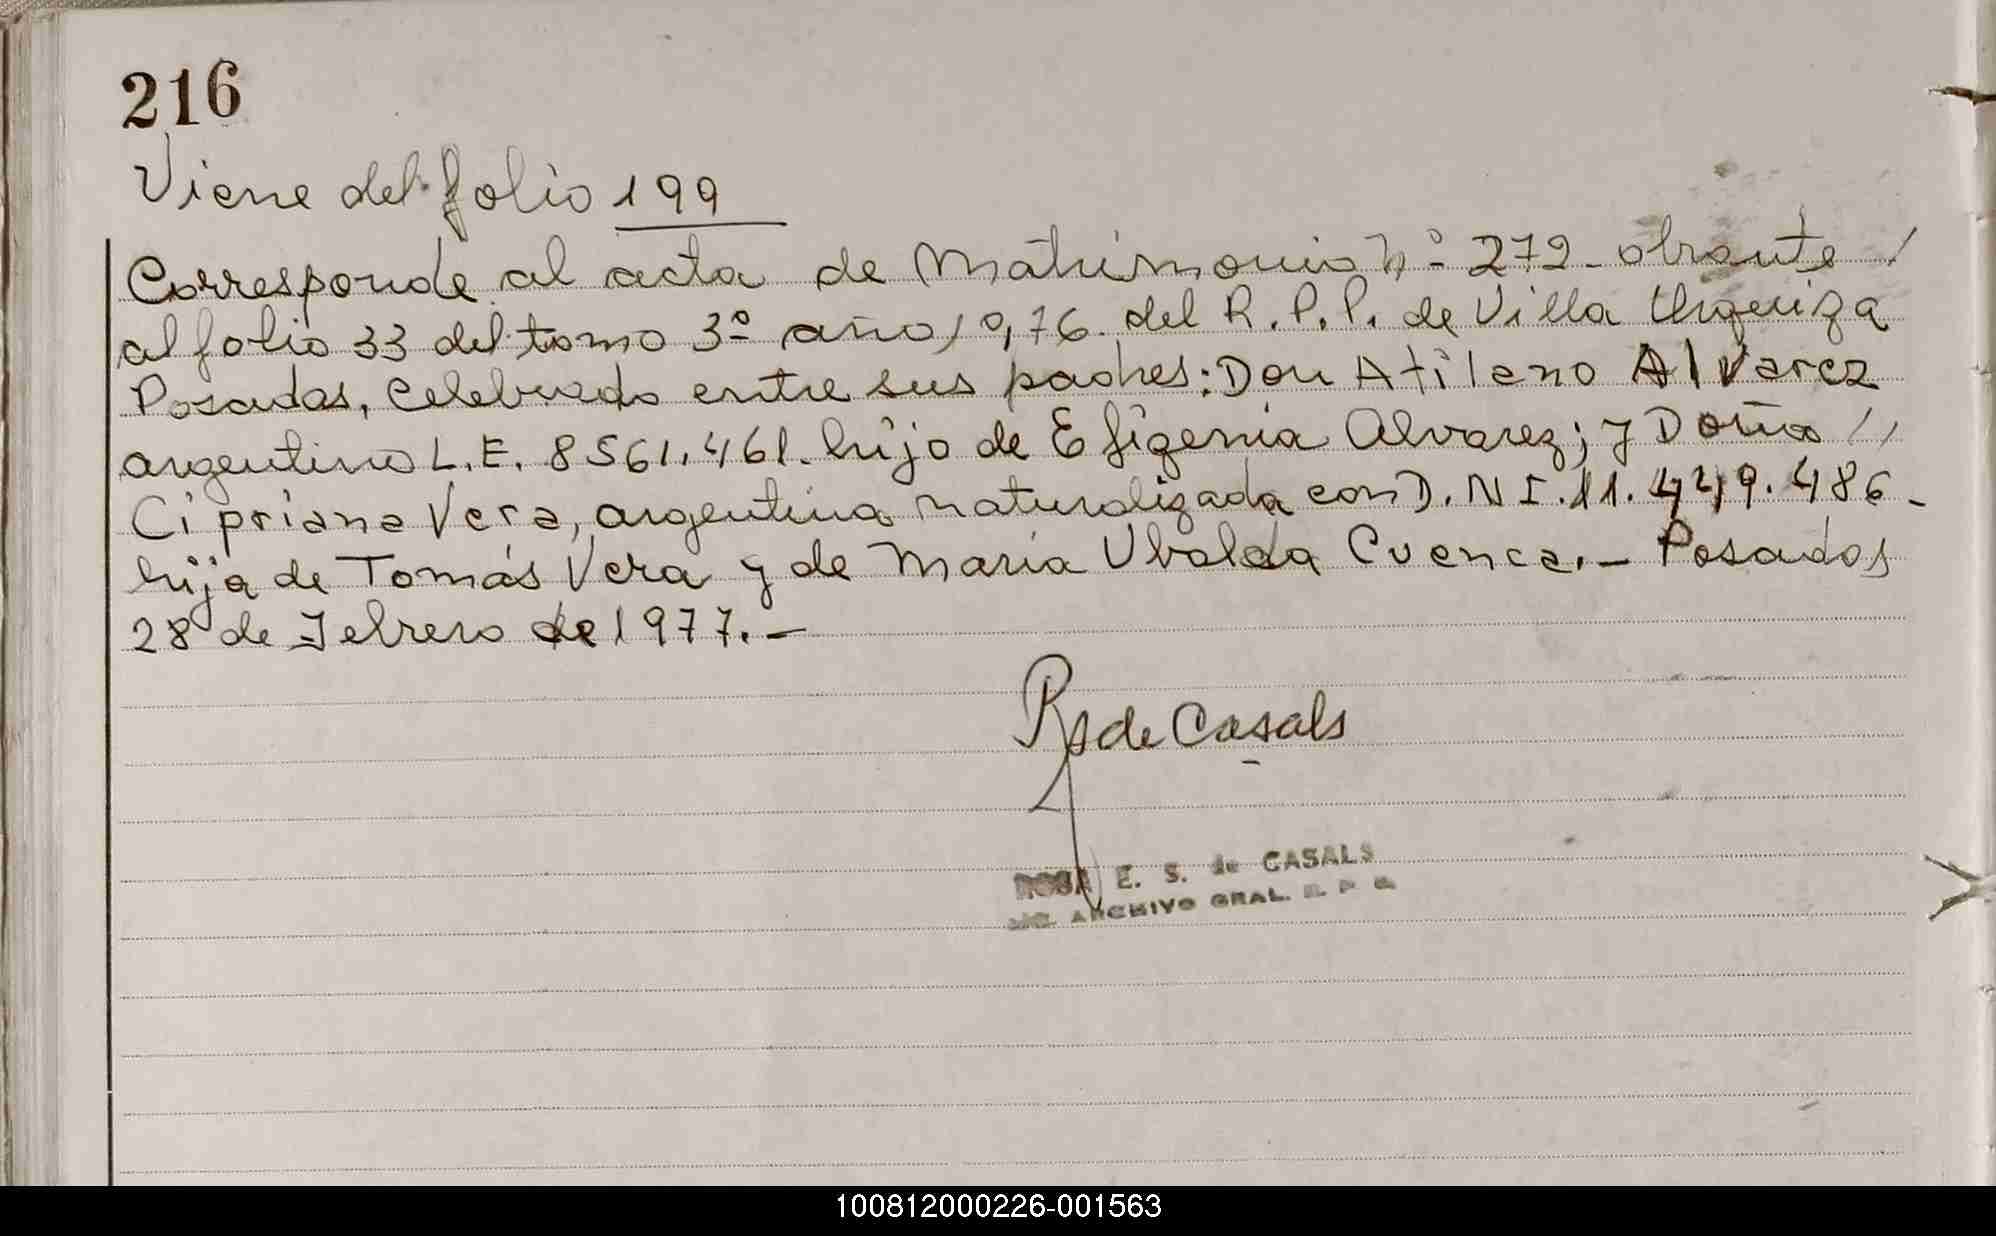 216
Viene del folio 199
Corresponde al acta de Matrimonio Nº 272 - obrante /
al folio 33 del tomo 3º año 1976. del R.P.P. de Villa Urquiza
Posadas, celebrado entre sus padres: Don Atilano Alvarez
argentino L.E. 8561.461. hijo de Efigenia Alvarez; y Doña //
Cipriana Vera, argentina naturalizada con D.NI. 11.449.486 -
hija de Tomás Vera y de María Ubalda Cuenca. - Posadas
28 de Febrero de 1977. -
R de Casals
ROSA E. S. de CASALS
ARCHIVO GRAL. R. P.
100812000226-001563